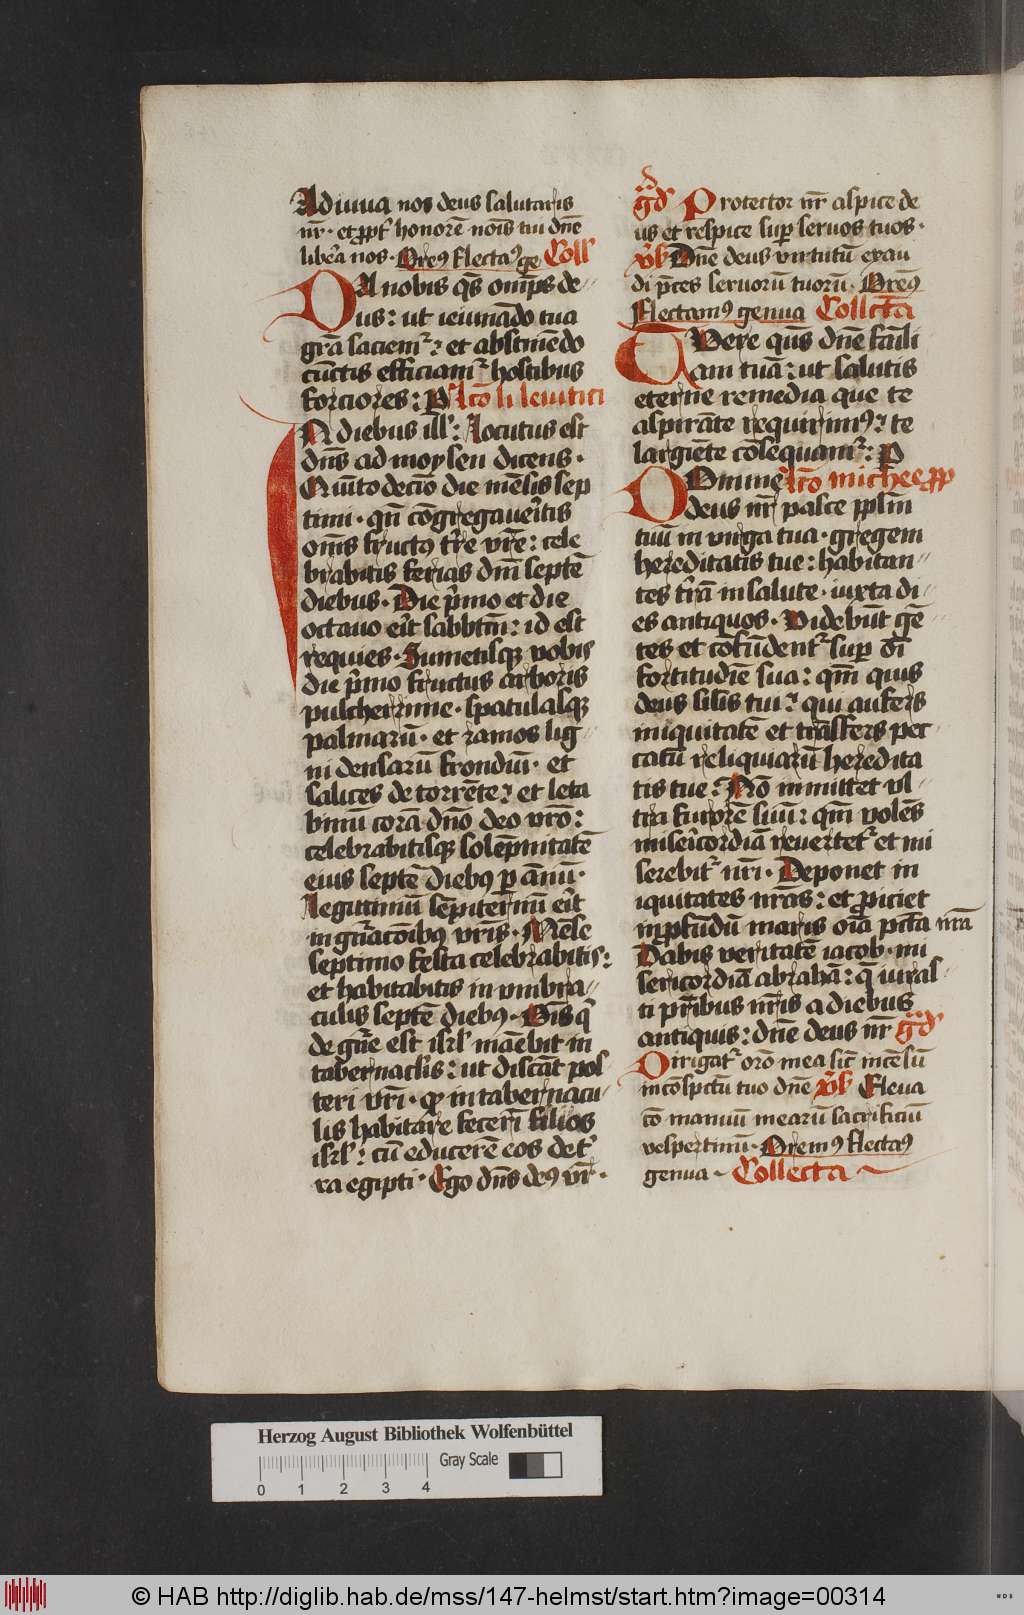 Adiuua nos deus salutaris
nr̄ · et ꝓpt̄ honorē nois̄ tui dn̄e
libeā nos · Orem⁹ Flectaꝰ ge Coll̄
DA nobis qs̄ om̄ps de⸗
us : ut ieiunādo tua
grā saciemꝰ : et abstinēdo
cūctis efficiamꝰ hostibus
forciores : P Lc̄o li leuitici
IN diebus ill̄ : Locutus est
dn̄s ad moysen dicens ·
Quīto decīo die mēsis sep
timi · qn̄ cōgregaueītis
om̄is fructꝰ tr̄e vr̄e : cele
brabitis ferias dn̄i septē
diebus · Die p̄mo et die
octauo eīt sabbtm̄ : id est
requies · Sumetisqꝫ vobis
die p̄mo fructus arboris
pulcherrime · spatulasqꝫ
palmarū · et ramos lig⸗
ni densarū frondiū · et
salices de torrēte : et leta
bimī corā dn̄o deo vr̄o :
celebrabitisqꝫ solēpnitatē
eius septē diebꝰ p annū ·
Legitimū sēpiternū eīt
in gn̄acōibꝰ vr̄is · Mēse
septimo festa celebrabitis :
et habitabitis in vmbra⸗
culis septē diebꝰ · Oīs q̄
de gn̄e est isrl̄ māebit in
tabernacl̄is : ut discāt pos
teri vr̄i · qꝫ in tabernacu⸗
lis habitare fecerī filios
isrl̄ : cū educerē eos de t̄
ra egipti · Ego dn̄s deꝰ vr̄ ·
gd̄ Protector nr̄ aspice de
us et respice suꝑ seruos tuos ·
vs̄ Dn̄e deus virtutū exau
di p̄ces seruorū tuorū · Oremꝰ
Flectamꝰ genua Collcta
TUere qs̄ dn̄e famīli
am tuā : ut salutis
eterne remedia que te
aspirāte requirimꝰ : te
largiēte cōsequamꝰ : P
DOmine Lc̄o michee ꝓp
deus nr̄ pasce ppl̄m
tuū in virga tua · gregem
hereditatis tue : habitan⸗
tes tr̄ā in salute · iuxta di⸗
es antiquos · Videbūt gē⸗
tes et cōfūdentꝰ suꝑ oī
fortitudīe sua : qm̄ quis
deus silis tui : qui aufers
iniquitatē et trāsfers pec
catū reliquiarū heredita
tis tue : Nō inmittet vl⸗
tra furorē suū : qm̄ volēs
misericordiā reuertetꝰ et mi
serebitꝰ nr̄i · Deponet in
iquitates nr̄as : et ꝓiciet
in ꝓfūdū maris oīa pctā nr̄a
Dabis veritatē iacob · mi
sericordiā abrahā : q̄ iuras⸗
ti pr̄ibus nr̄is a diebus
antiquis : dn̄e deus nr̄ gd̄
Dirigatꝰ orō mea sic̄ incēsū
in cōspctū tuo dn̄e vs̄ Eleua
cō manuū mearū sacrificiū
vespertinū · Oremꝰ Flectaꝰ
genua · Collecta
Herzog August Bibliothek Wolfenbüttel
Gray Scale
0 1 2 3 4
© HAB http://diglib.hab.de/mss/147-helmst/start.htm?image=00314